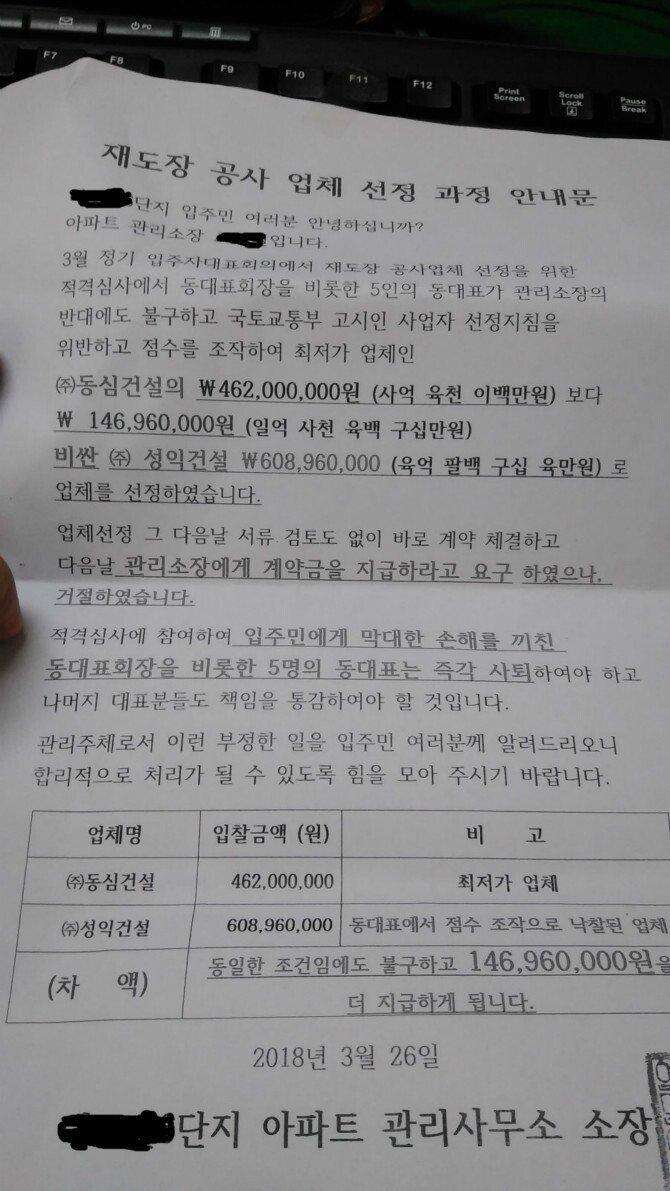 F7
F8
F9
F10
F11
F12
Print Screen
Scroll Lock
Pause Break
PC
재도장 공사 업체 선정 과정 안내문
단지 입주민 여러분 안녕하십니까?
아파트 관리소장 입니다.
3월 정기 입주자대표회의에서 재도장 공사업체 선정을 위한
적격심사에서 동대표회장을 비롯한 5인의 동대표가 관리소장의
반대에도 불구하고 국토교통부 고시인 사업자 선정지침을
위반하고 점수를 조작하여 최저가 업체인
㈜동심건설의 ₩462,000,000원 (사억 육천 이백만원) 보다
₩ 146,960,000원 (일억 사천 육백 구십만원)
비싼 ㈜ 성익건설 ₩608,960,000 (육억 팔백 구십 육만원) 로
업체를 선정하였습니다.
업체선정 그 다음날 서류 검토도 없이 바로 계약 체결하고
다음날 관리소장에게 계약금을 지급하라고 요구 하였으나,
거절하였습니다.
적격심사에 참여하여 입주민에게 막대한 손해를 끼친
동대표회장을 비롯한 5명의 동대표는 즉각 사퇴하여야 하고
나머지 대표분들도 책임을 통감하여야 할 것입니다.
관리주체로서 이런 부정한 일을 입주민 여러분께 알려드리오니
합리적으로 처리가 될 수 있도록 힘을 모아 주시기 바랍니다.
업체명 입찰금액 (원) 비 고
㈜동심건설 462,000,000 최저가 업체
㈜성익건설 608,960,000 동대표에서 점수 조작으로 낙찰된 업체
(차 액) 동일한 조건임에도 불구하고 146,960,000원을
더 지급하게 됩니다.
2018년 3월 26일
단지 아파트 관리사무소 소장